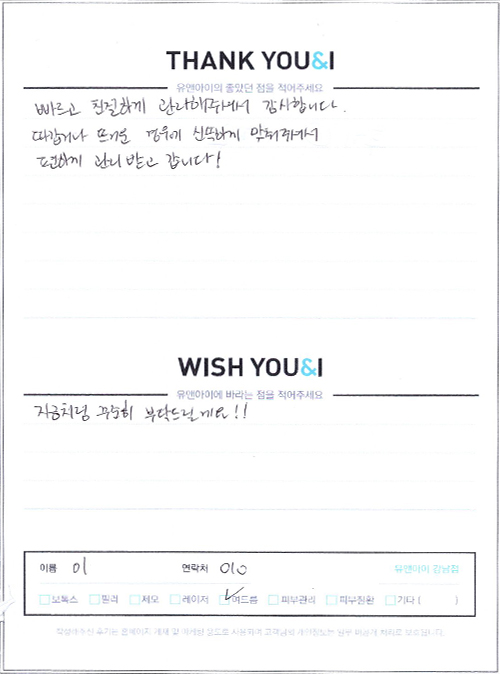 THANK YOU&I
유앤아이의 좋았던 점을 적어주세요
빠르고 친절하게 관리해주셔서 감사합니다.
따갑거나 뜨거운 경우에 신속하게 맞춰주셔서
편하게 관리 받고 갑니다!
WISH YOU&I
유앤아이에 바라는 점을 적어주세요
지금처럼 꾸준히 부탁드릴게요!!
이름 이 연락처 010 유앤아이 강남점
보톡스 필러 제모 레이저 여드름 피부관리 피부질환 기타 ( )